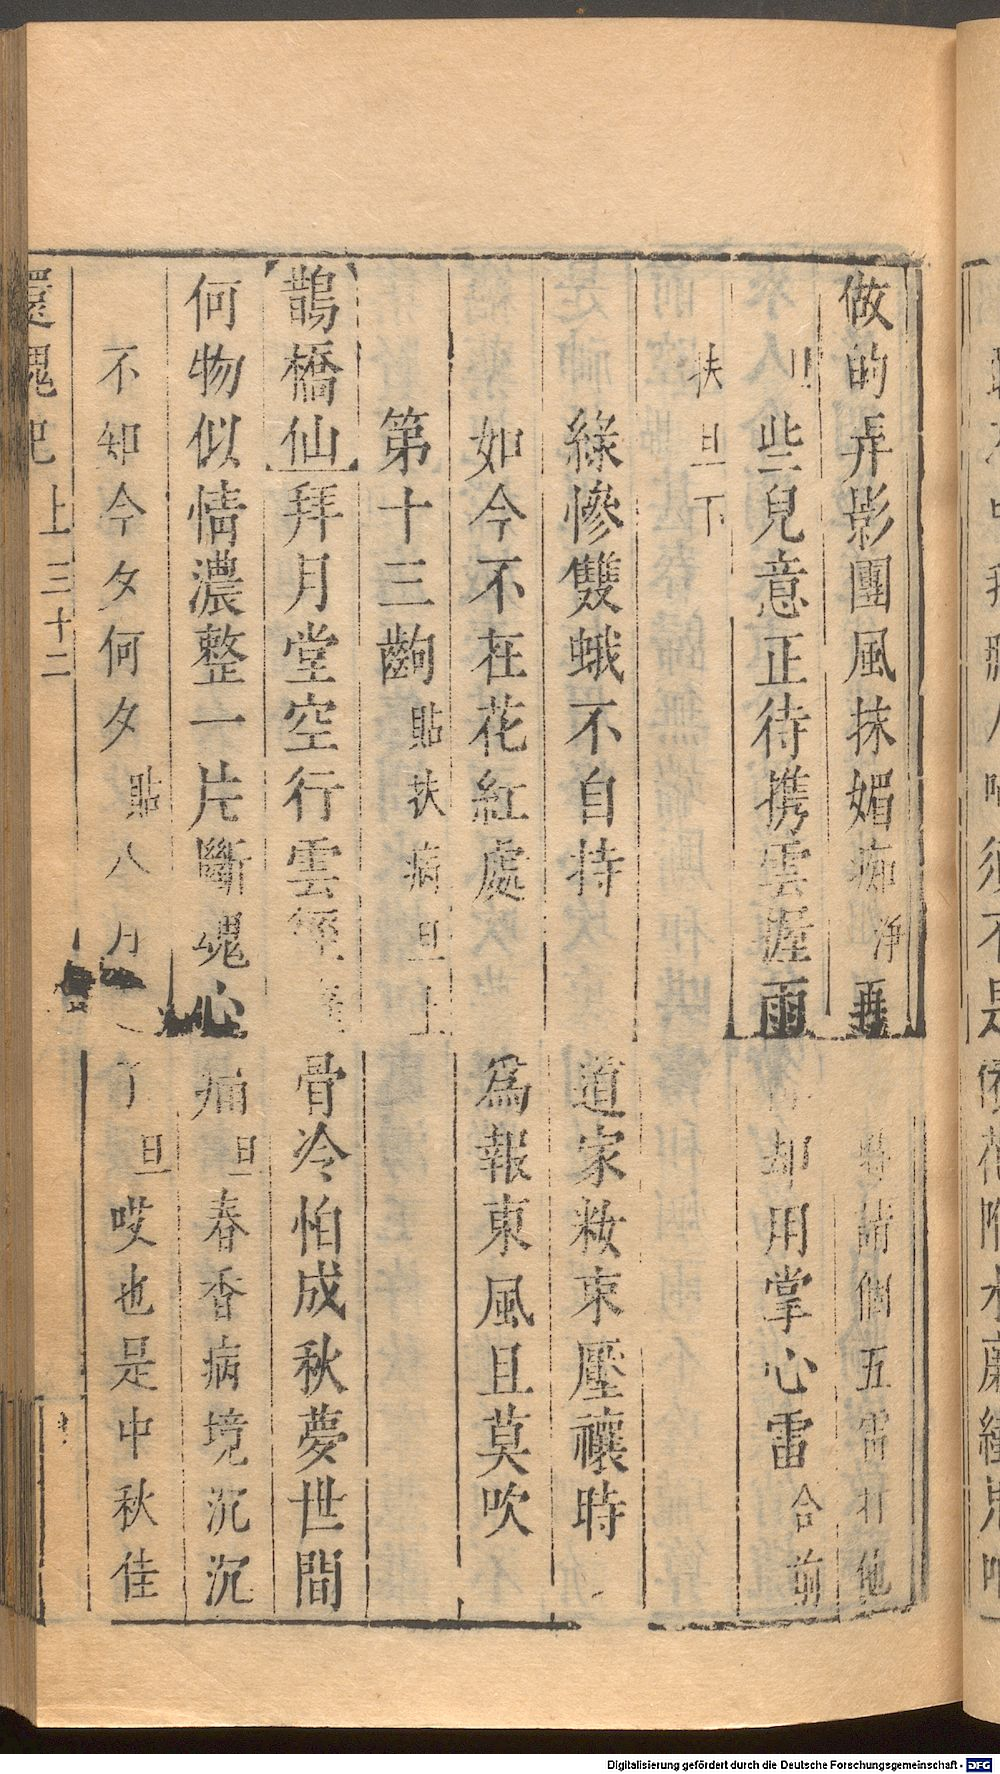 做的弄影團風抹媚痴淨再 請個五雷打他
些兒意正待携雲握雨 却用掌心雷合前
扶旦下
綠慘雙蛾不自持 道家妝束壓禳時
如今不在花紅處 爲報東風且莫吹
第十三齣貼扶病旦上
鵲橋仙拜月堂空行雲徑 骨冷怕成秋夢世間
何物似情濃整一片斷魂心痛旦春香病境沉沉
不知今夕何夕貼八月 了旦哎也是中秋佳
還魂記 上三十二
Digitalisierung gefördert durch die Deutsche Forschungsgemeinschaft - DFG